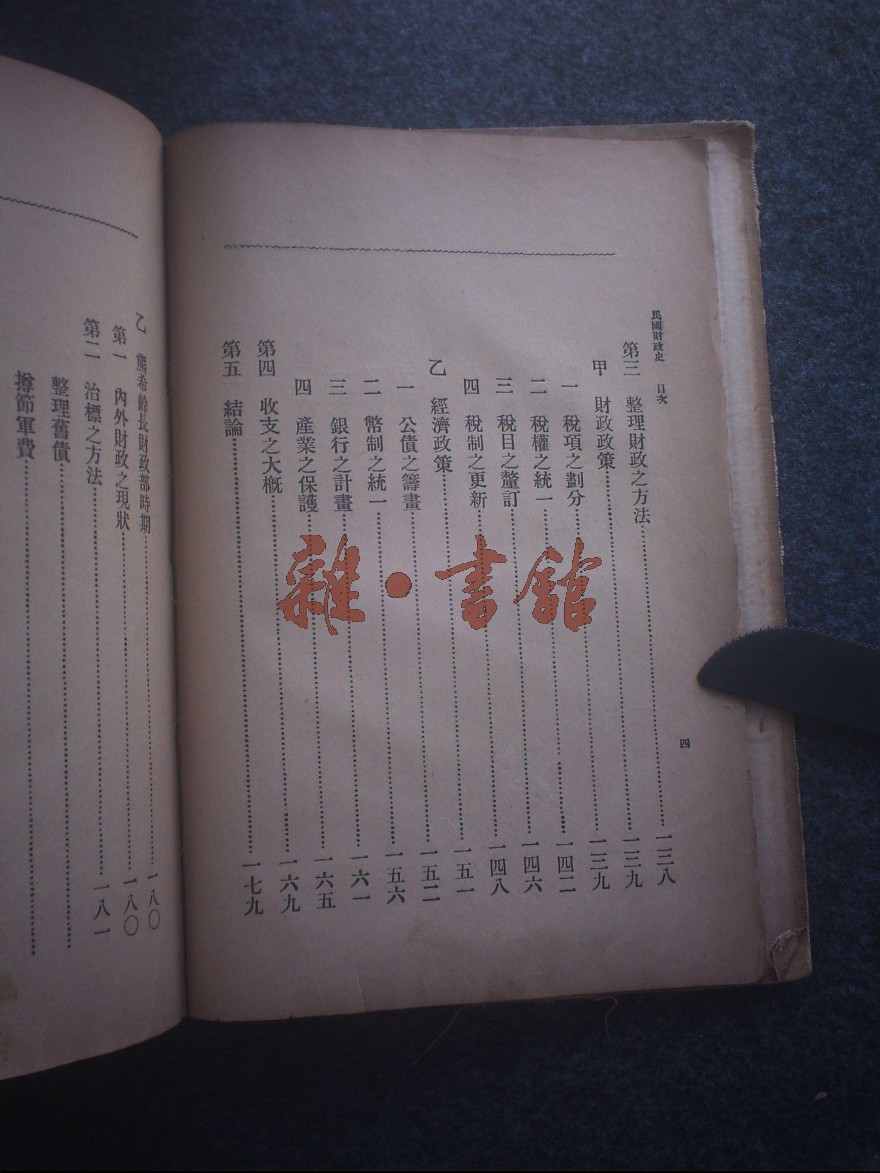 民國財政史 目次 四
第三 整理財政之方法……一三八
甲 財政政策……一三九
一 稅項之劃分……一三九
二 稅權之統一……一四二
三 稅目之釐訂……一四六
四 稅制之更新……一四八
乙 經濟政策……一五一
一 公債之籌畫……一五二
二 幣制之統一……一五六
三 銀行之計畫……一六一
四 產業之保護……一六五
第四 收支之大概……一六九
第五 結論……一七九
乙 熊希齡長財政部時期……一八〇
第一 內外財政之現狀……一八〇
第二 治標之方法……一八一
整理舊債……
撙節軍費……
雜·書館